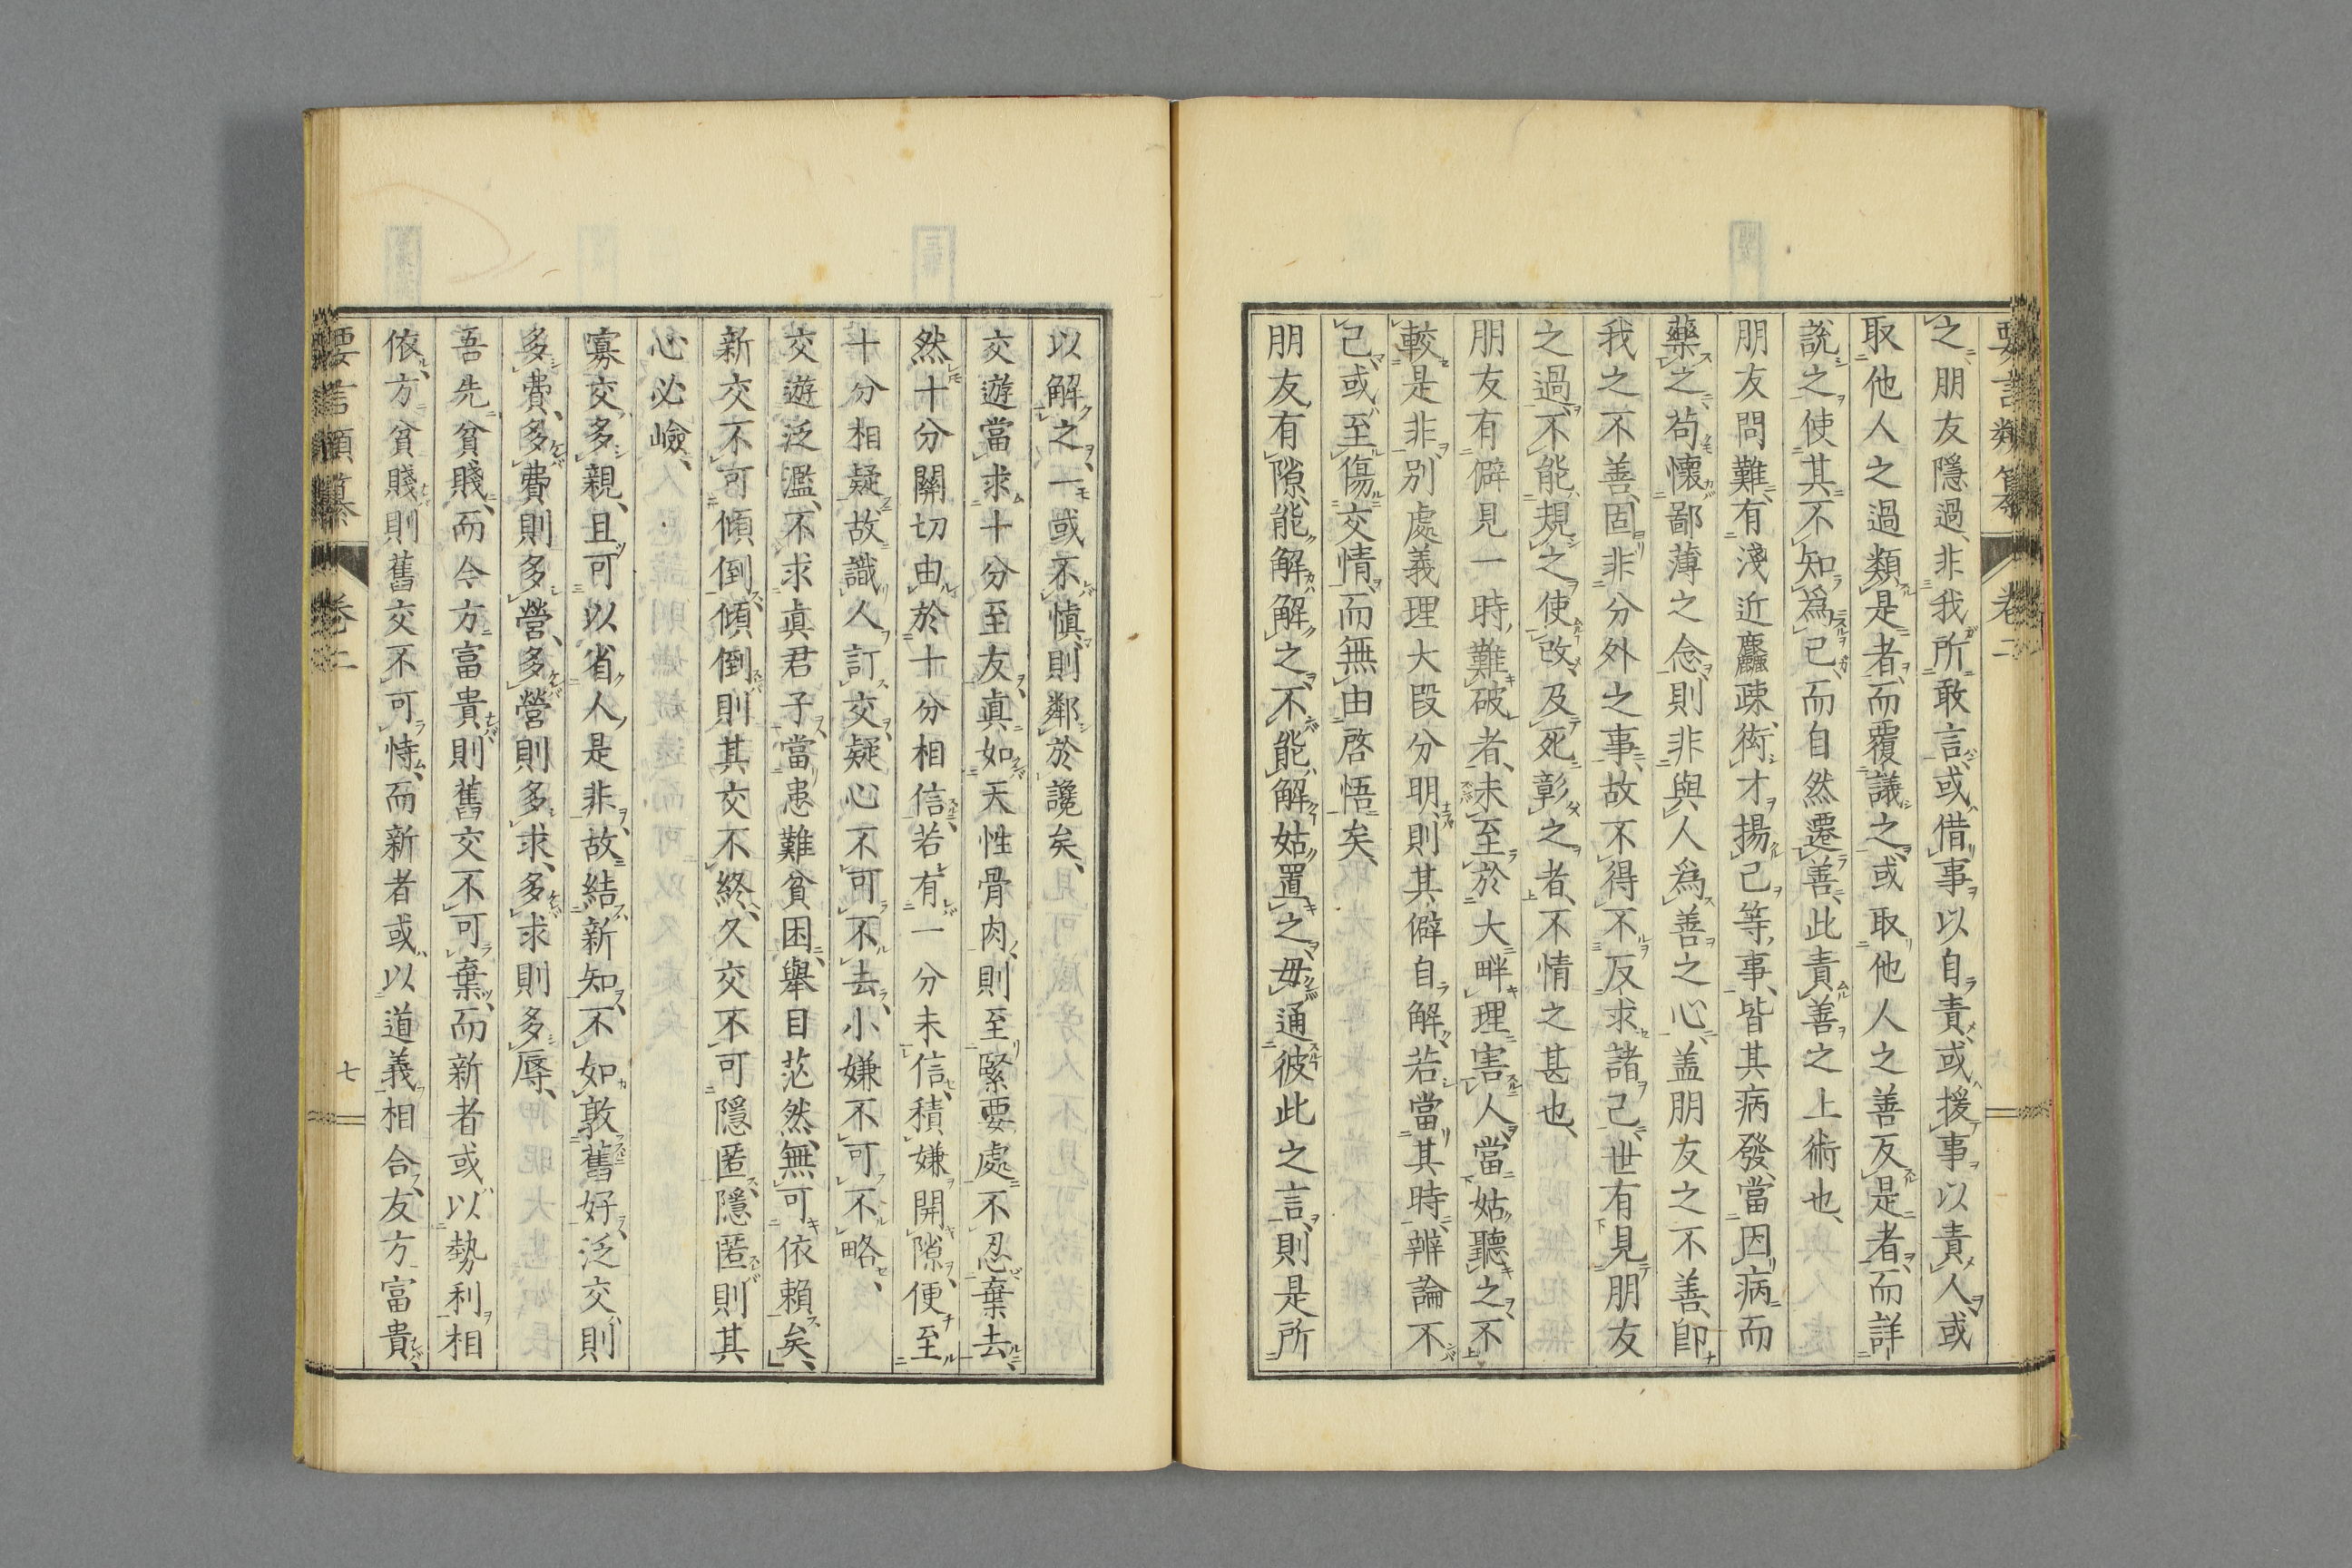 要言類纂 卷二
之朋友隱過非我所敢言或借事以自責或援事以責人或
取他人之過類是者而覆議之或取他人之善反是者而詳
說之使其不知為己而自然遷善此責善之上術也
朋友問難有淺近麤疎衒才揚己等事皆其病發當因病而
藥之苟懷鄙薄之念則非與人為善之心盖朋友之不善卽
我之不善固非分外之事故不得不反求諸己世有見朋友
之過不能規之使改及死彰之者不情之甚也
朋友有僻見一時難破者未至於大畔理害人當姑聽之不
較是非別處義理大段分明則其僻自解若當其時辨論不
己或至傷交情而無由啓悟矣
朋友有隙能解解之不能解姑置之毋通彼此之言則是所
以解之一或不慎則鄰於讒矣
交遊當求十分至友真如天性骨肉則至緊要處不忍棄去
然十分關切由於十分相信若有一分未信積嫌開隙便至
十分相疑故識人訂交疑心不可不去小嫌不可不略
交遊泛濫不求真君子當患難貧困舉目茫然無可依賴矣
新交不可傾倒傾倒則其交不終久交不可隱匿隱匿則其
心必嶮
寡交多親且可以省人是非故結新知不如敦舊好泛交則
多費多費則多營多營則多求多求則多辱
吾先貧賤而今方富貴則舊交不可棄而新者或以勢利相
依方貧賤則舊交不可恃而新者或以道義相合友方富貴
要言類纂 卷二 七